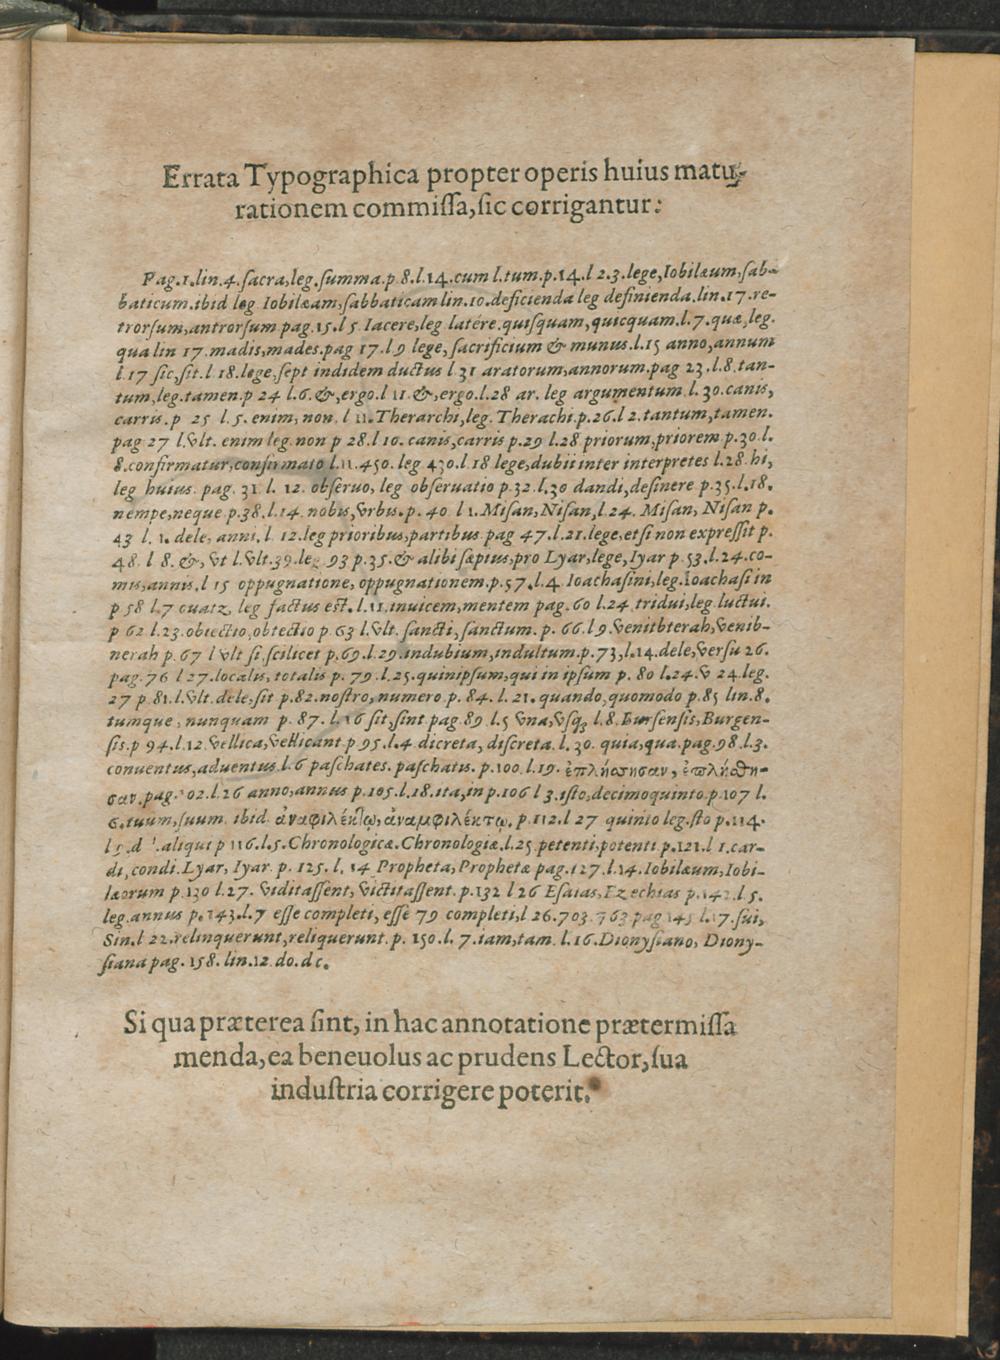 Errata Typographica propter operis huius matu-
rationem commissa, sic corrigantur:
Pag.1.lin.4.sacra,leg.summa.p 8.l.14.cum l.tum.p.14.l 2.3.lege,Iobilæum,sab-
baticum.ibid leg Iobilæam,sabbaticam lin.10.deficienda leg definienda.lin.17.re-
trorsum,antrorsum pag.15.l 5 Iacere,leg latére.quisquam,quicquam.l.7.quæ,leg.
qua lin 17.madis,mades.pag 17.l 9 lege, sacrificium & munus.l.15 anno,annum
l.17 sic,sit.l 18.lege,sept indidem ductus l 31 aratorum,annorum.pag 23.l.8.tan-
tum,leg.tamen.p 24 l.6.&,ergo.l 11.&,ergo.l.28 ar. leg argumentum l.30.canis,
carris.p 25 l.5. enim, non. l 11. Therarchi,leg. Therachi.p.26.l 2.tantum,tamen.
pag 27 l.vlt. enim leg.non p 28.l 10. canis,carris p.29 l.28 priorum,priorem p.30.l.
8.confirmatur,confirmato l.11.450.leg 430.l 18 lege,dubii inter interpretes l.28.hi,
leg huius. pag. 31 l. 12. obseruo, leg obseruatio p.32.l.30 dandi,desinere p.35.l.18.
nempe,neque p.38.l.14. nobis,vrbis.p. 40 l 1.Misan,Nisan,l.24. Misan, Nisan p.
43 l. 1. dele, anni, l. 12.leg prioribus,partibus pag 47.l.21.lege,etsi non expressit p.
48. l 8. &, vt l.vlt.39.leg 93 p.35.& alibi sæpius,pro Lyar,lege,Iyar p.53.l.24.co-
mis,annis.l 15 oppugnatione, oppugnationem.p.57.l.4. Ioachasini,leg.Ioachasi in
p 58 l.7 leg factus est.l.11.inuicem,mentem pag.60 l.24 tridui,leg luctui.
p 62 l.23.obiectio,obtectio p 63 l.vlt. sancti,sanctum. p. 66.l 9.venitbterah,venib-
nerah p.67 l vlt si.scilicet p.69.l.29.indubium,indultum.p.73,l.14.dele,versu 26.
pag.76 l 27.localis, totalis p. 79.l.25.quinipsum,qui in ipsum p. 80 l.24.v 24.leg.
27 p 81.l.vlt.dele,sit p.82.nostro,numero p. 84. l. 21. quando,quomodo p.85 lin.8.
tumque, nunquam p. 87. l.16 sit,sint pag 89.l.5 vna,vsq; l.8.Bursensis,Burgen-
sis.p 94.l.12.vellica,vellicant p 95.l.4 dicreta, discreta.l.30. quia,qua.pag.98.l.3.
conuentus,aduentus.l.6 paschates.paschatis. p.100.l.19. ἐπλήσησαν, ἐπλήσθη-
σαν.pag.102.l.26 anno,annus p.105.l.18.ita,in p.106 l 3.isto,decimoquinto.p.107 l.
6.tuum,suum. ibid. ἀναφιλέκτῳ,ἀναμφιλέκτῳ. p.112.l 27 quinio leg.sto p.114.
l aliqui p 116.l.5.Chronologicæ.Chronologiæ.l.25 petenti,potenti p.121.l 1.car-
di, condi. Lyar, Iyar. p. 125. l. 14 Propheta,Prophetæ pag.127.l.14.Iobilæum,Iobi-
læorum p.130 l.27. viditassent, victitassent.p.132 l 26 Esaias,Ezechias p.142.l 5.
leg.annus p.143.l.7 esse completi, esse 79 completi,l 26.703.763 pag 145 l.17.sui,
Sin.l 22.relinquerunt,reliquerunt. p. 150.l. 7.iam,tam. l.16.Dionysiano, Diony-
siana pag. 158. lin.12.do.dc.
Si qua præterea sint, in hac annotatione prætermissa
menda, ea beneuolus ac prudens Lector, sua
industria corrigere poterit.